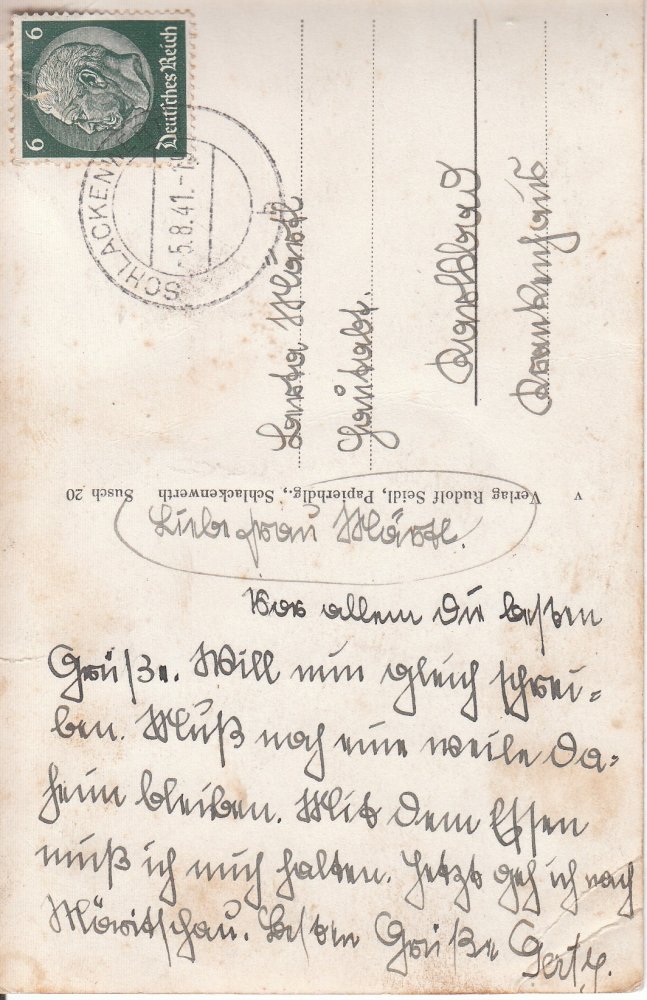 6
6
Deutsches Reich
SCHLACKENW
-5.8.41.-1
Berta Märtl
Hautabt.
Karlsbad
Krankenhaus
v Verlag Rudolf Seidl, Papierhdlg., Schlackenwerth Susch 20
Liebe Frau Märtl.
Vor allem die besten
Grüße. Will nun gleich schrei=
ben. Muß noch eine weile da=
heim bleiben. Mit dem Essen
muß ich mich halten. Jetzt geh ich nach
Möritschau. Besten Grüße